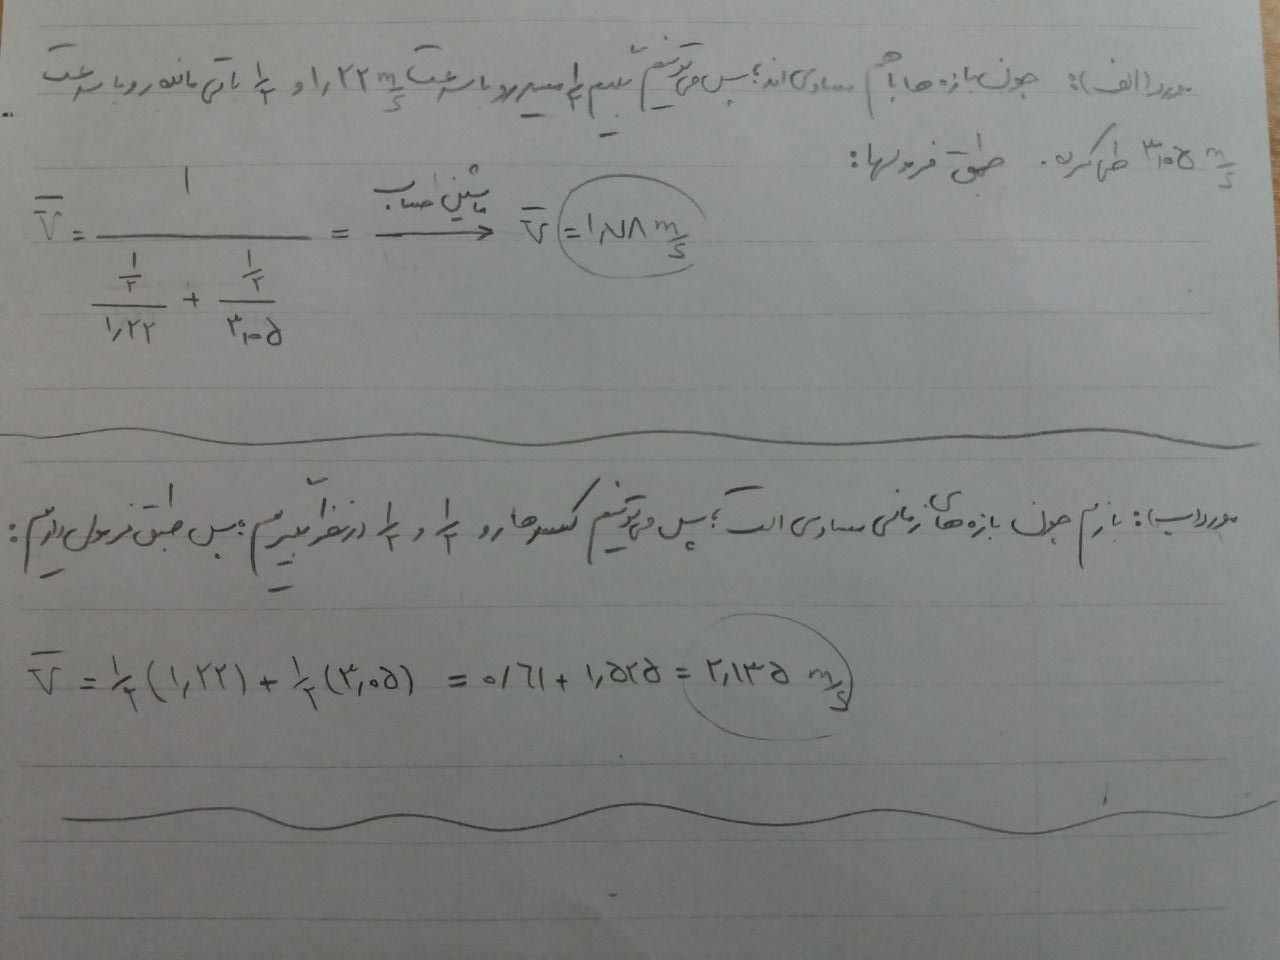 مورد (الف): چون بازه ها با هم مساوی اند؛ پس می تونیم بگیم ۱/۲ مسیر رو با سرعت ۱٫۲۲ m/s و ۱/۲ باقی مانده رو با سرعت
۳٫۰۵ m/s طی کرده. طبق فرمولها:
V̄ = ۱ / ((۱/۲)/۱٫۲۲ + (۱/۲)/۳٫۰۵) = ماشین حساب → V̄ = ۱٫۷۸ m/s
مورد (ب): بازم چون بازه های زمانی مساوی است؛ پس می تونیم کسرها رو ۱/۲ و ۱/۲ در نظر بگیریم؛ پس طبق فرمول داریم:
V̄ = ۱/۲ (۱٫۲۲) + ۱/۲ (۳٫۰۵) = ۰٫۶۱ + ۱٫۵۲۵ = ۲٫۱۳۵ m/s